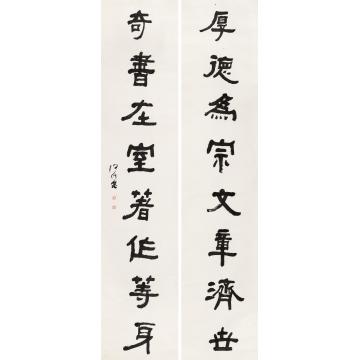 厚德為宗文章濟世
奇書在室著作等身